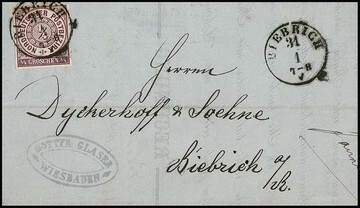 BIEBRICH
31
NORDDEUTSCHER POSTBEZIRK
1/4
1/4 GROSCHEN 1/4
BIEBRICH
31
1
7-8
Herren
Dyckerhoff & Soehne
Biebrich a/
Rh.
GLASER
WIESBADEN